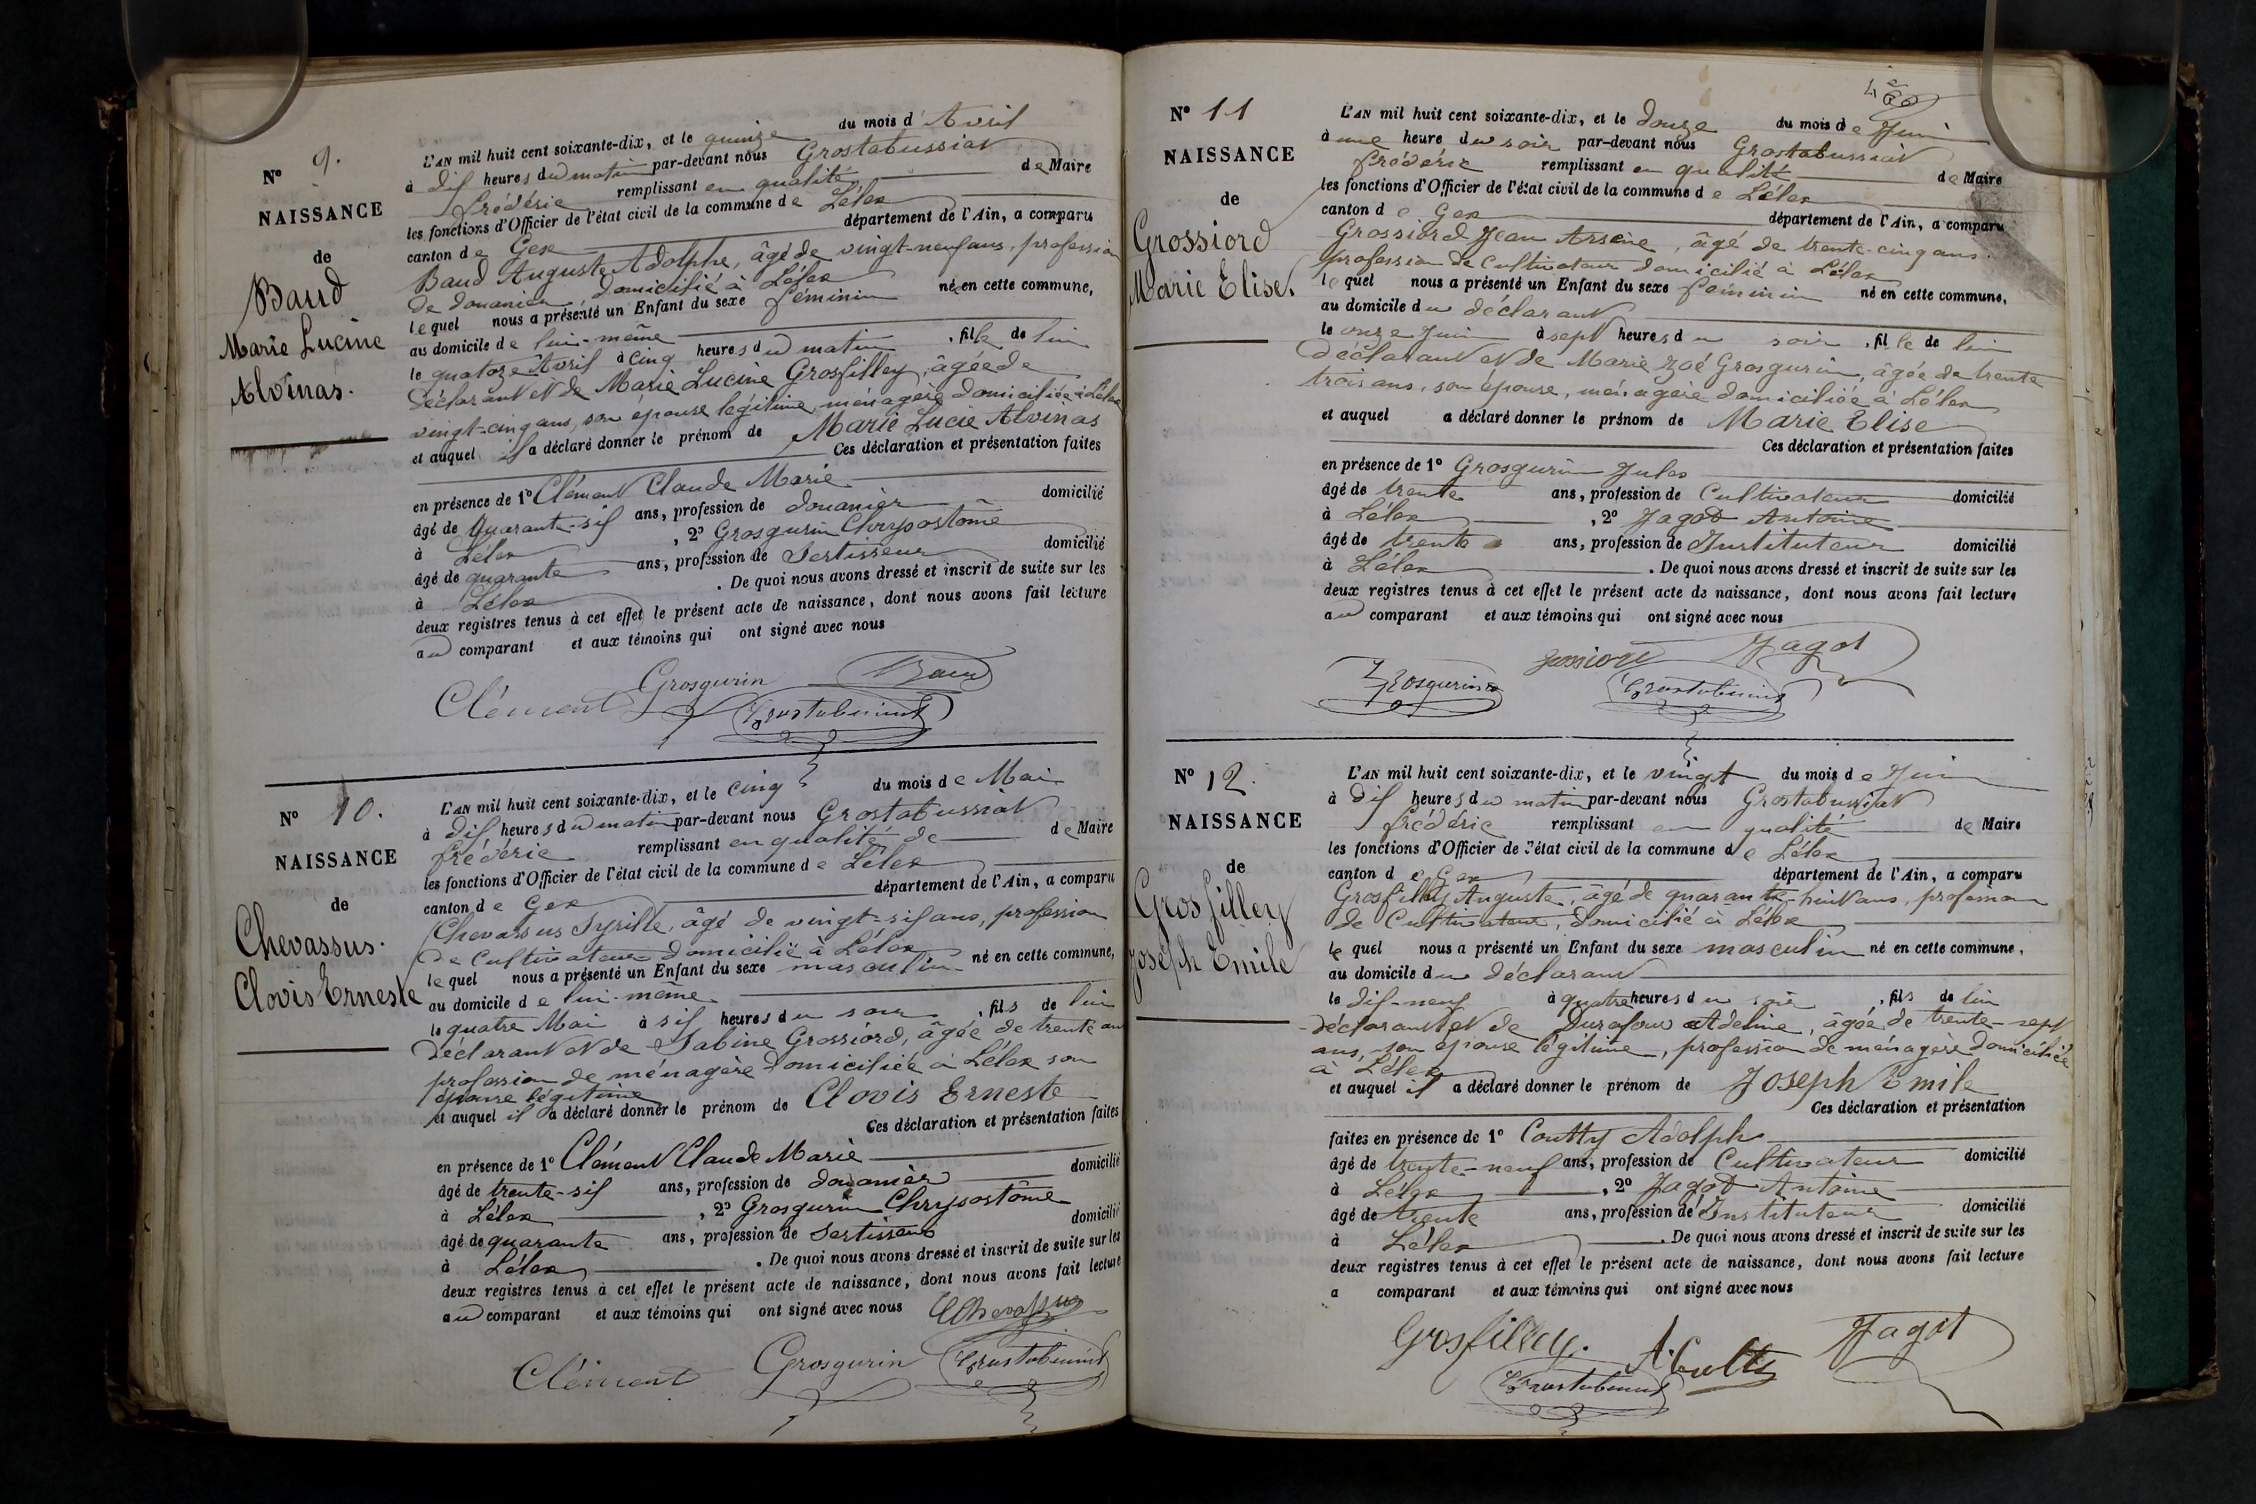 N° 9.
NAISSANCE
de
Baud
Marie Lucine
Alvinas.
L'AN mil huit cent soixante-dix, et le quinze du mois d'Avril
à dix heures du matin par-devant nous Grostabussiat
frédéric remplissant en qualité de Maire
les fonctions d'Officier de l'état civil de la commune de Lélex
canton de Gex département de l'Ain, a comparu
Baud Auguste Adolphe, âgé de vingt-neuf ans, profession
de douanier domicilié à Lélex
lequel nous a présenté un Enfant du sexe féminin née en cette commune,
au domicile de lui-même
le quatorze Avril à cinq heures du matin, fille de lui
déclarant et de Marie Lucine Grosfilley, âgée de
vingt-cinq ans, son épouse légitime, ménagère domiciliée à Lélex
et auquel il a déclaré donner le prénom de Marie Lucie Alvinas
Ces déclaration et présentation faites
en présence de 1° Clément Claude Marie
âgé de Quarante-six ans, profession de douanier domicilié
à Lélex, 2° Grosgurin Chrysostôme
âgé de quarante ans, profession de Sertisseur domicilié
à Lélex. De quoi nous avons dressé et inscrit de suite sur les
deux registres tenus à cet effet le présent acte de naissance, dont nous avons fait lecture
au comparant et aux témoins qui ont signé avec nous
Grosgurin Baud
Clément Grostabussiat
N° 10.
NAISSANCE
de
Chevassus.
Clovis Erneste
L'AN mil huit cent soixante-dix, et le cinq du mois de Mai
à dix heures du matin par-devant nous Grostabussiat
frédéric remplissant en qualité de de Maire
les fonctions d'Officier de l'état civil de la commune de Lélex
canton de Gex département de l'Ain, a comparu
Chevassus Syrille, âgé de vingt-six ans, profession
de Cultivateur domicilié à Lélex
lequel nous a présenté un Enfant du sexe masculin né en cette commune,
au domicile de lui-même
le quatre Mai à six heures du soir, fils de lui
déclarant et de Sabine Grossiord, âgée de trente ans
profession de ménagère domiciliée à Lélex son
épouse légitime
et auquel il a déclaré donner le prénom de Clovis Erneste
Ces déclaration et présentation faites
en présence de 1° Clément Claude Marie
âgé de trente-six ans, profession de douanier domicilié
à Lélex, 2° Grosgurin Chrysostôme
âgé de quarante ans, profession de Sertisseur domicilié
à Lélex. De quoi nous avons dressé et inscrit de suite sur les
deux registres tenus à cet effet le présent acte de naissance, dont nous avons fait lecture
au comparant et aux témoins qui ont signé avec nous Chevassus
Clément Grosgurin Grostabussiat
N° 11
NAISSANCE
de
Grossiord
Marie Elise.
L'AN mil huit cent soixante-dix, et le douze du mois de Juin
à une heure du soir par-devant nous Grostabussiat
frédéric remplissant en qualité de Maire
les fonctions d'Officier de l'état civil de la commune de Lélex
canton de Gex département de l'Ain, a comparu
Grossiord Jean Arsène, âgé de trente-cinq ans.
profession de Cultivateur domicilié à Lélex
lequel nous a présenté un Enfant du sexe féminin né en cette commune,
au domicile du déclarant
le onze Juin à sept heures du soir, fille de lui
déclarant et de Marie Zoé Grosgurin, âgée de trente
trois ans, son épouse, ménagère domiciliée à Lélex
et auquel a déclaré donner le prénom de Marie Elise
Ces déclaration et présentation faites
en présence de 1° Grosgurin Jules
âgé de trente ans, profession de Cultivateur domicilié
à Lélex, 2° Jagot Antoine
âgé de trente ans, profession de Instituteur domicilié
à Lélex. De quoi nous avons dressé et inscrit de suite sur les
deux registres tenus à cet effet le présent acte de naissance, dont nous avons fait lecture
au comparant et aux témoins qui ont signé avec nous
Grossiord Jagot
Grosgurin Grostabussiat
N° 12.
NAISSANCE
de
Grosfilley
Joseph Emile
L'AN mil huit cent soixante-dix, et le vingt du mois de Juin
à dix heures du matin par-devant nous Grostabussiat
frédéric remplissant en qualité de Maire
les fonctions d'Officier de l'état civil de la commune de Lélex
canton de Gex département de l'Ain, a comparu
Grosfilley Auguste, âgé de quarante-huit ans, profession
de Cultivateur, domicilié à Lélex
lequel nous a présenté un Enfant du sexe masculin né en cette commune,
au domicile du déclarant
le dix-neuf à quatre heures du soir, fils de lui
déclarant et de Durafour Adeline, âgée de trente-sept
ans, son épouse légitime, profession de ménagère domiciliée
à Lélex
et auquel il a déclaré donner le prénom de Joseph Emile
Ces déclaration et présentation
faites en présence de 1° Coutty Adolphe
âgé de trente-neuf ans, profession de Cultivateur domicilié
à Lélex, 2° Jagot Antoine
âgé de trente ans, profession de Instituteur domicilié
à Lélex. De quoi nous avons dressé et inscrit de suite sur les
deux registres tenus à cet effet le présent acte de naissance, dont nous avons fait lecture
a comparant et aux témoins qui ont signé avec nous
Grosfilley. A. Coutty Jagot
Grostabussiat